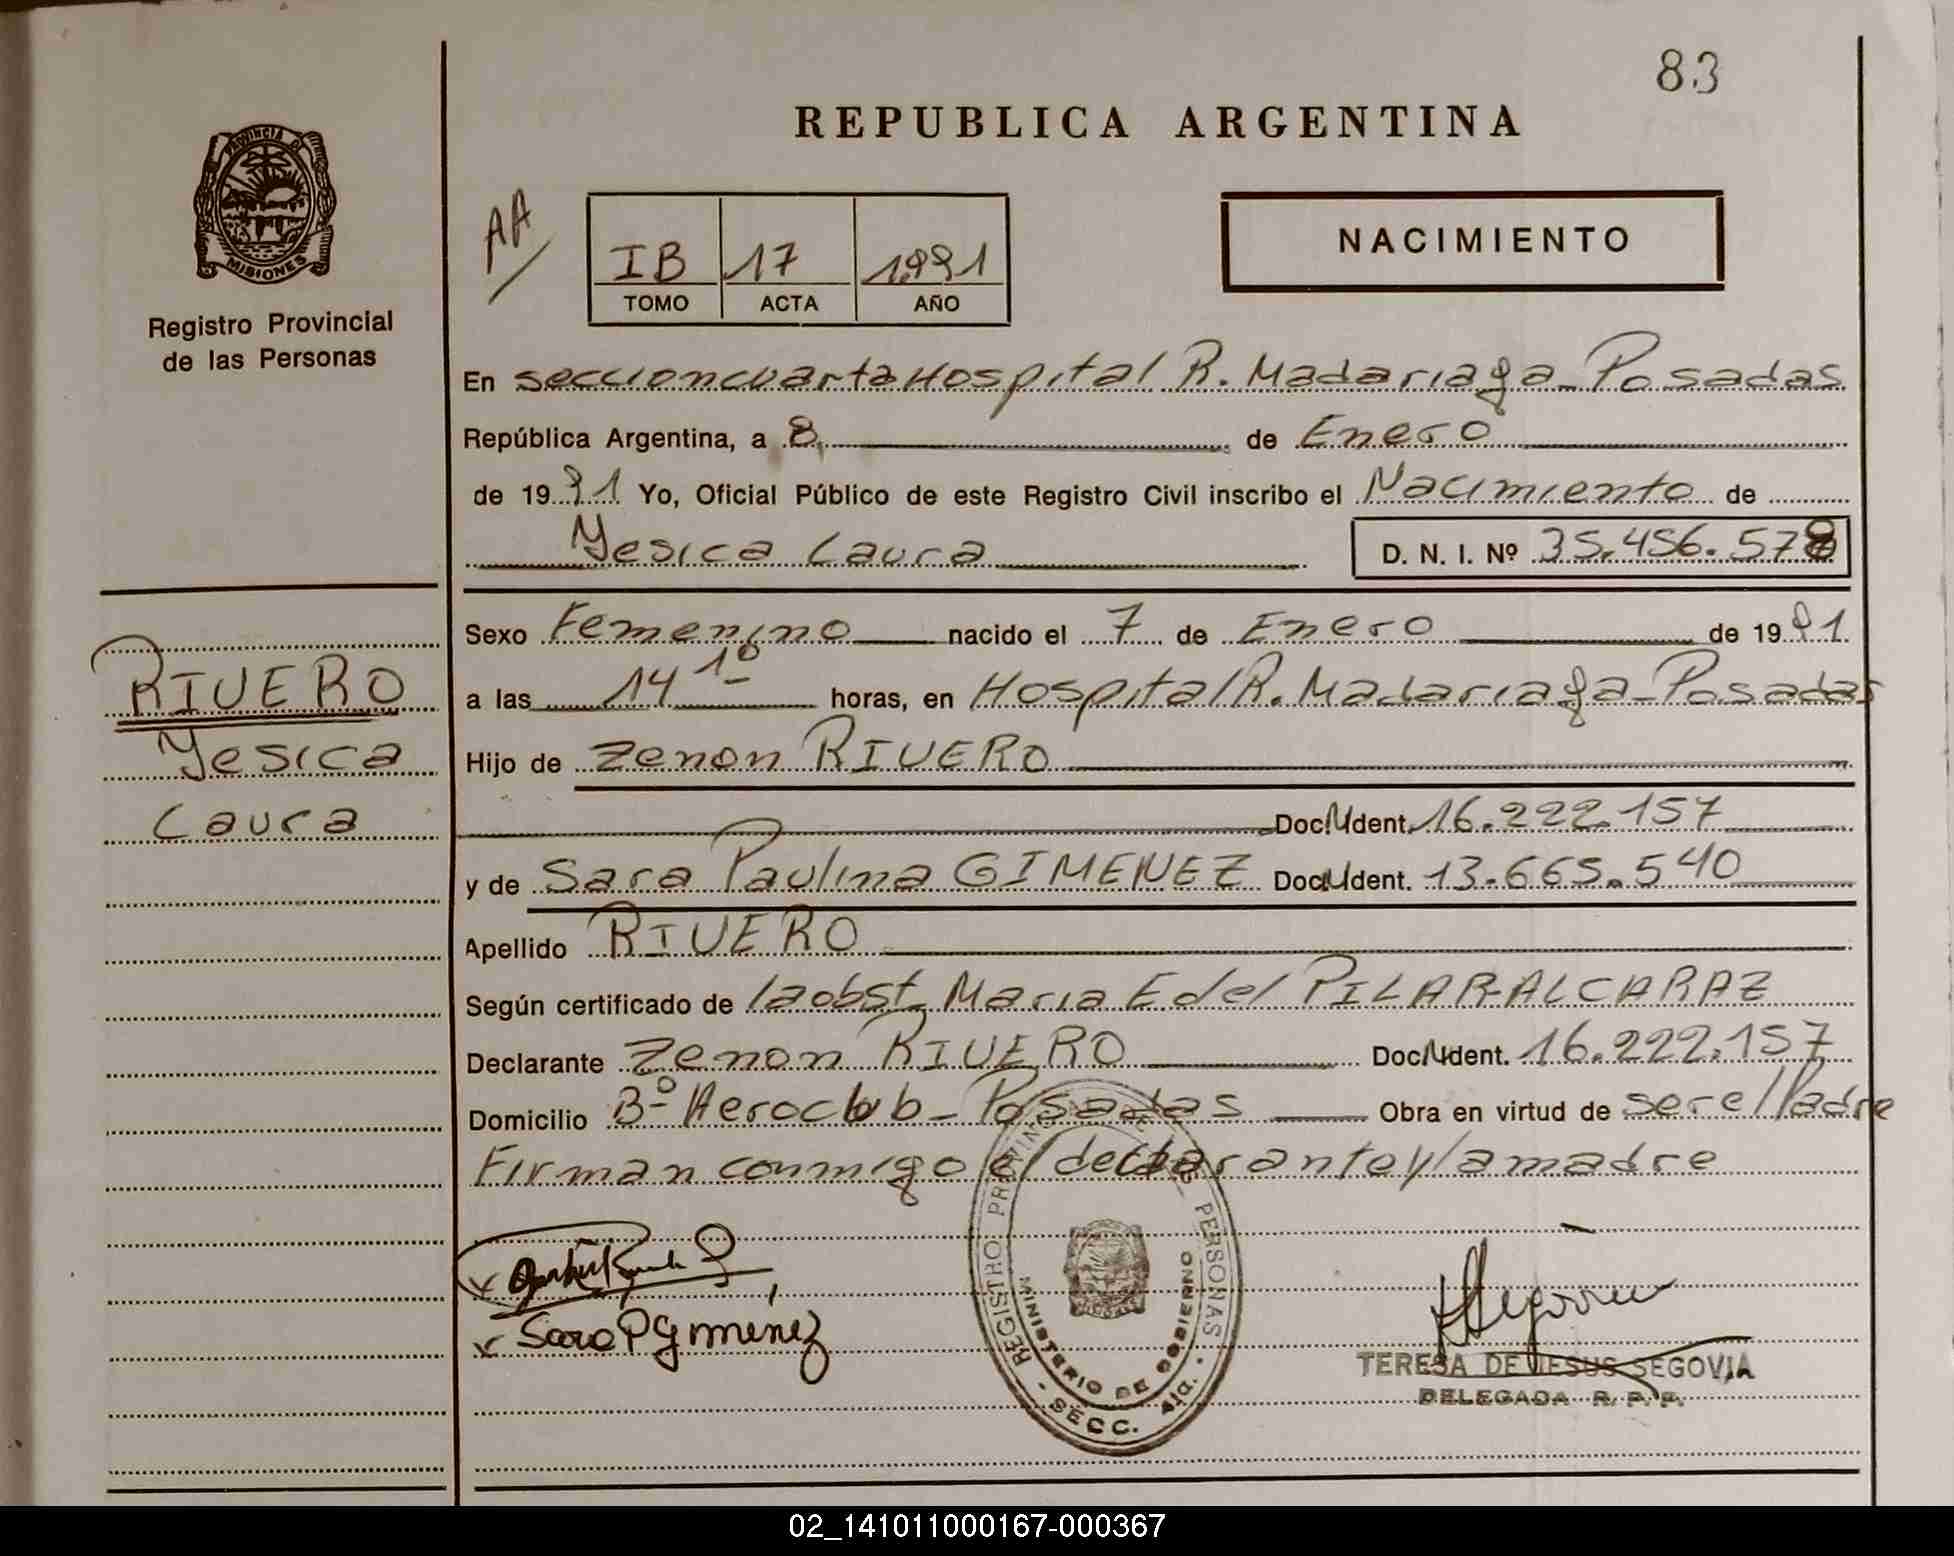 83
REPUBLICA ARGENTINA
PROVINCIA DE
MISIONES
Registro Provincial
de las Personas
AA
IB 17 1991
TOMO ACTA AÑO
NACIMIENTO
En seccion cuarta Hospital R. Madariaga - Posadas
República Argentina, a 8 de Enero
de 1991 Yo, Oficial Público de este Registro Civil inscribo el Nacimiento de
Yesica Laura
D. N. I. Nº 35.456.578
RIVERO
Yesica
Laura
Sexo Femenino nacido el 7 de Enero de 1991
a las 14 10 horas, en Hospital R. Madariaga - Posadas
Hijo de Zenon RIVERO
Doc. Ident. 16.222.157
y de Sara Paulina GIMENEZ Doc. Ident. 13.665.540
Apellido RIVERO
Según certificado de la obst. Maria E del PILAR ALCARAZ
Declarante Zenon RIVERO Doc. Ident. 16.222.157
Domicilio Bº Aeroclub - Posadas Obra en virtud de ser el Padre
Firman conmigo el declarante y la madre
Sara P Gimenez
REGISTRO PROVINCIAL DE LAS PERSONAS
MINISTERIO DE GOBIERNO
SECC. 4ta.
TERESA DE JESUS SEGOVIA
DELEGADA R. P. P.
02_141011000167-000367